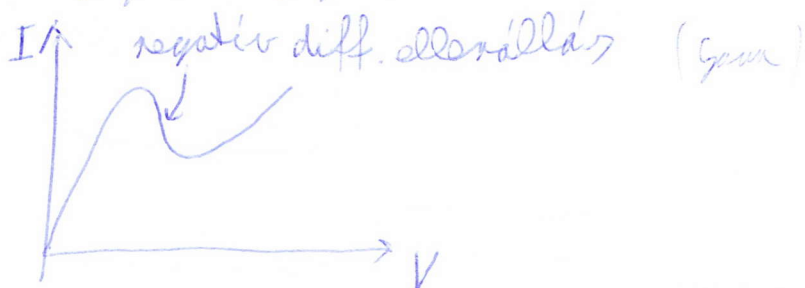 I negatív diff. ellenállás
V